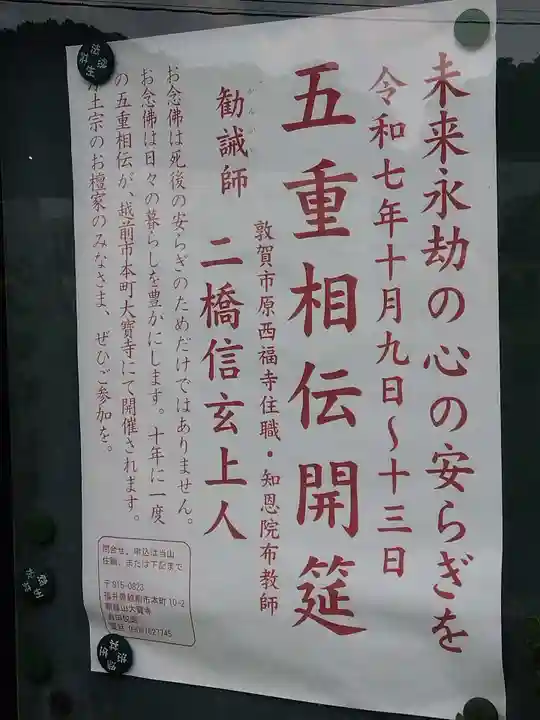 未来永劫の心の安らぎを
令和七年十月九日～十三日
五重相伝開筵
敦賀市原西福寺住職・知恩院布教師
勧誡師 二橋信玄上人
かんかいし
お念佛は死後の安らぎのためだけではありません。
お念佛は日々の暮らしを豊かにします。十年に一度
の五重相伝が、越前市本町大寳寺にて開催されます。
浄土宗のお檀家のみなさま、ぜひご参加を。
問合せ、申込は当山
住職、または下記まで
〒915-0823
福井県越前市本町10-2
大寳寺
電話